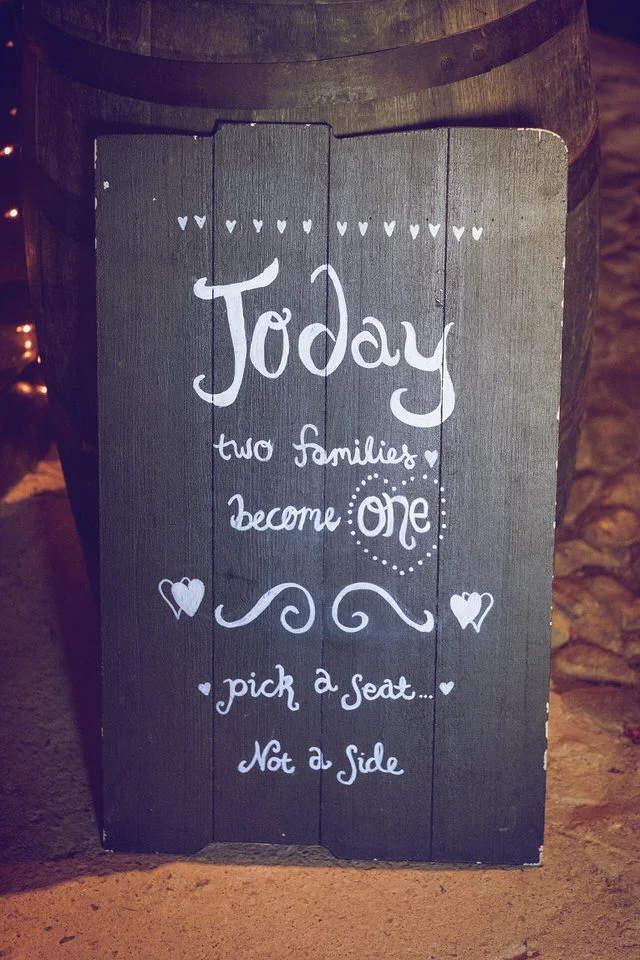 Today
two families
become one
pick a seat...
Not a side